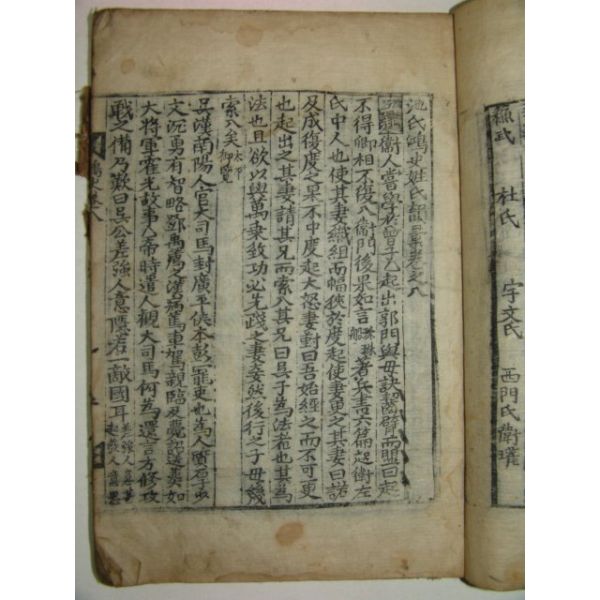 杜氏 宇文氏 西門氏 衛瓘
池氏鴻史姓氏韻彙卷之八
衛人嘗學於曾子乙起出郭門與母訣齧臂而盟曰起
不得卿相不復入衛門後果如言 著兵書六篇起衛左
氏中人也使其妻織組而幅狹於度起使妻更之其妻曰諾
及成復度之果不中度起大怒妻對曰吾始經之而不可更
也起出之其妻請其兄而索入其兄曰吳子為法者也其為
法也且欲以與萬乘致功必先踐之妻妾然後行之子毋幾
索入矣太平御覽
吳漢南陽人官大司馬封廣平侯本彭寵吏也為人質石子少
文沉勇有智略鄧禹薦之漢病篤車駕親臨及薨詔隧葬如
大將軍霍光故事乙帝時遣人觀大司馬何為還言方修攻
戰之備乃歎曰吳公差強人意隱若一敵國耳差強人意